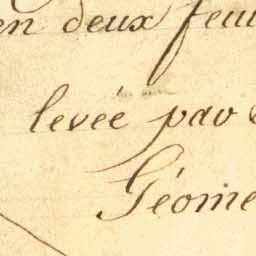 en deux feui
levée par
Géome